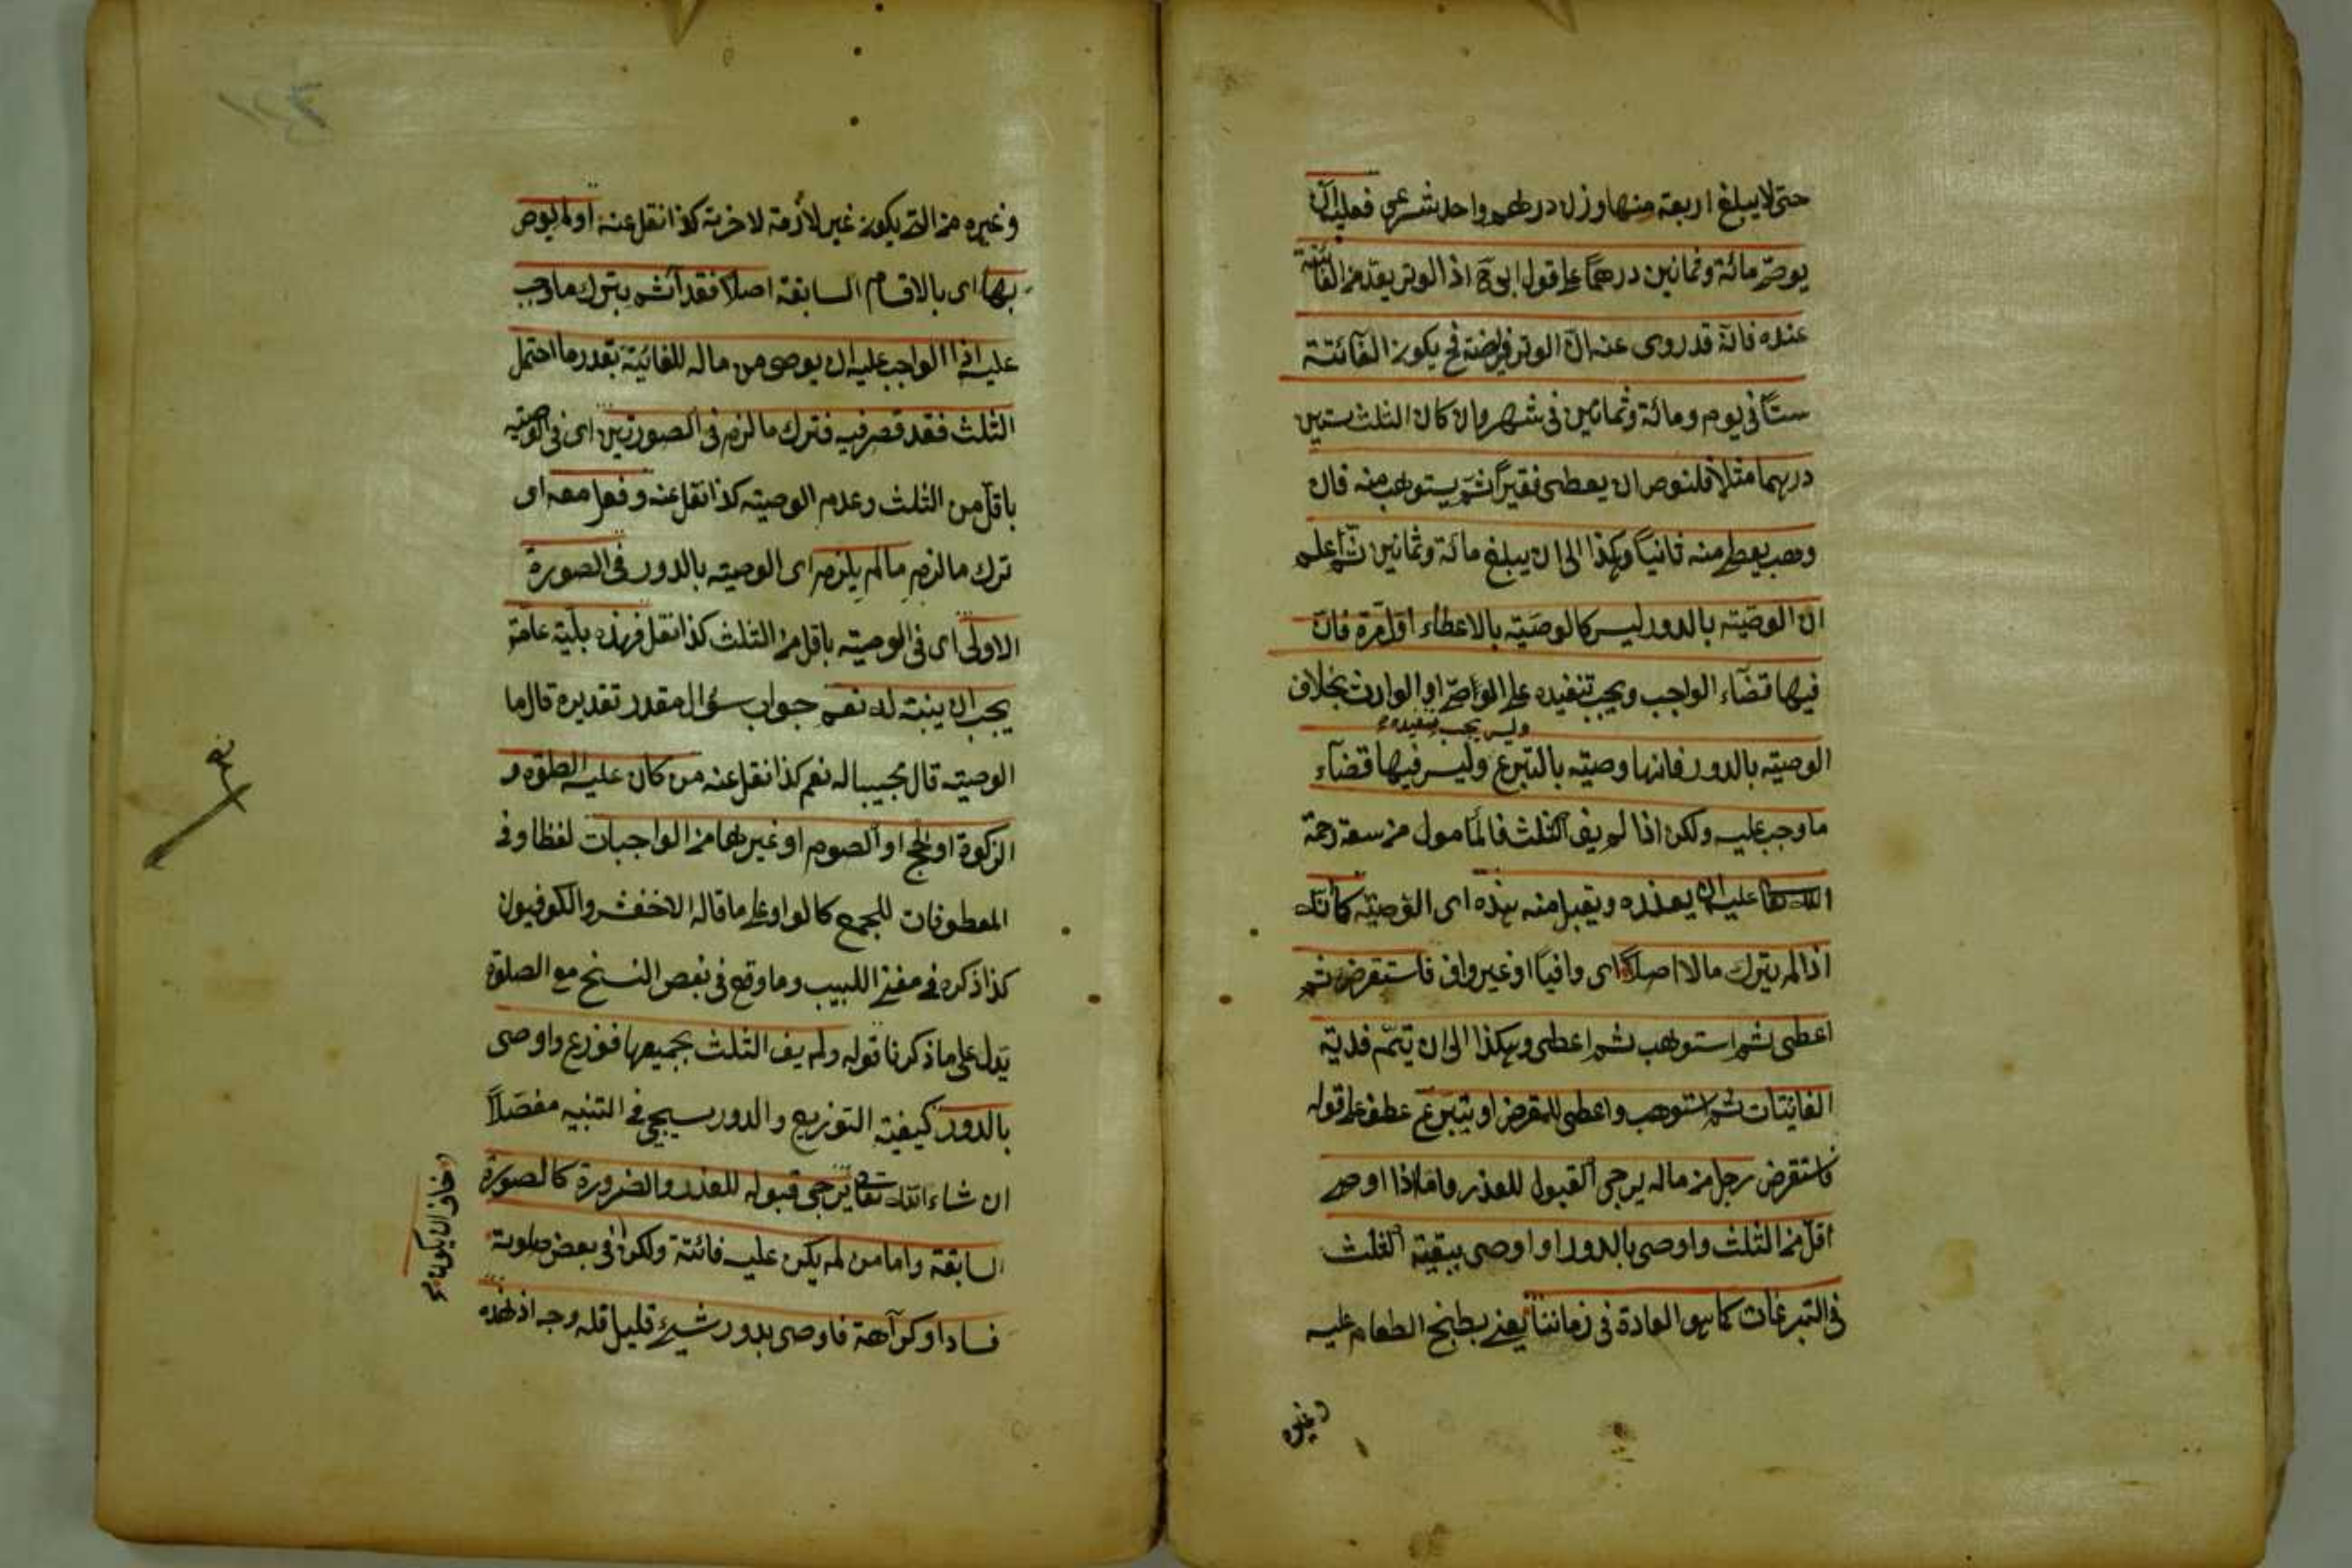 حتى لا يبلغ اربعة منها وزن درهم واحد شرعى فعليه ان
يوصى مائة وثمانين درهمًا على قول ابى ح اذ الوتر يقدم الفائتة
عنده فانه قد روى عنه انّ الوتر فريضة فح يكون الفائتة
ستّا فى يوم ومائة وثمانين فى شهر وان كان الثلث ستين
درهما مثلا فليوص ان يعطى فقيرًا ثم يستوهب منه فان
وهب يعطى منه ثانيًا وهكذا الى ان يبلغ مائة وثمانين ثم اعلم
ان الوصيّة بالدور ليس كالوصيّة بالاعطاء اوّل مرة فان
فيها قضاء الواجب ويجب تنفيذه على الواصى او الوارث بخلاف
وليس يجب تنفيذه
الوصيّة بالدور فانها وصيّة بالتبرع وليس فيها قضاء
ما وجب عليه ولكن اذا لم يف الثلث فالمأمول من سعة رحمة
الله تعا عليه ان يعذره ويقبل منه هذه اى الوصيّة كأنك
اذا لم يترك مالا اصلا اى وافيًا او غير واف فاستقرض ثم
اعطى ثم استوهب ثم اعطى وهكذا الى ان يتمّ فدية
الفائتات ثم استوهب واعطى للمقرض او يتبرّع عطف على قوله
فاستقرض رجل من ماله يرجى القبول للعذر واما اذا اوصى
اقل من الثلث واوصى بالدور او اوصى ببقية الثلث
فى التبرعات كما هو العادة فى زماننا يعنى بطبخ الطعام عليه
وغيره
وغيره من التى يكون غير لازمة لآخرته كذا نقل عنه او لم يوص
بها اى بالاقسام السابقة اصلا فقد أثم بترك ما وجب
عليه اذا الواجب عليه ان يوصى من ماله للفائتة بقدر ما احتمل
الثلث فقد قصر فيه فترك ما لزم فى الصورتين اى فى الوصيّة
باقل من الثلث وعدم الوصيّة كذا نقل عنه وفعل معه اى
ترك ما لزم ما لم يلزم اى الوصيّة بالدور فى الصورة
الاولى اى فى الوصيّة باقل من الثلث كذا نقل فهذه بليّة عامّة
يجب ان ينبّه له نعم جواب سؤال مقدر تقديره قال ما
الوصيّة قال مجيبا له نعم كذا نقل عنه من كان عليه الصلوة و
الزكوة او الحج او الصوم او غيرهما من الواجبات لفظ او فى
المعطوفات للجمع كالواو على ما قاله الاخفش والكوفيون
كذا ذكره فى مغنى اللبيب وما وقع فى بعض النسخ مع الصلوة
يدل على ما ذكرنا قوله ولم يف الثلث بجميعها فوزع واوصى
بالدور كيفية التوزيع والدور سيجى فى التنبيه مفصّلًا
ان شاء الله تعالى يرجى قبوله للعذر والضرورة كالصورة
السابقة واما من لم يكن عليه فائتة ولكن فى بعض صلوته
خاف ان يكون
فساد او كراهة فاوصى بدور شيئ قليل فله وجه اذ هذه